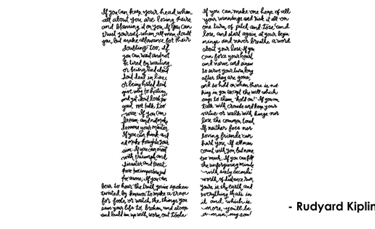 If you can keep your head when
all about you are losing theirs
and blaming it on you, If you can
trust yourself when all men doubt
you, but make allowance for their
doubting too, If
you can wait and not
be tired by waiting
or being lied about
don't deal in lies
or being hated don't
give way to hating
and yet don't look too
good, nor talk too
wise: If you can
dream and not make
dreams your master;
If you can think and
not make thoughts your
aim, If you can meet
with triumph and
disaster and treat
those two impostors just
the same, If you can
bear to hear the truth you've spoken
twisted by knaves to make a trap
for fools or watch the things you
gave your life to, broken, and stoop
and build em up with worn out tools
If you can make one heap of all
your winnings and risk it all on
one turn of pitch and toss, and
lose, and start again at your begin
nings and never breathe a word
about your loss, If you
can force your heart
and nerve and sinew
to serve your turn long
after they are gone,
and so hold on when there is not
hing in you except the will which
says to them, "hold on." If you can
talk with crowds and keep your
virtue or walk with kings nor
lose the common touch
If neither foes nor
loving friends can
hurt you, If all men
count with you, but none
too much, If you can fill
the unforgiving minute
with sixty seconds
worth of distance run
yours is the earth and
everything thats in
it and which is
more you'll be
a man, my son!
- Rudyard Kiplin